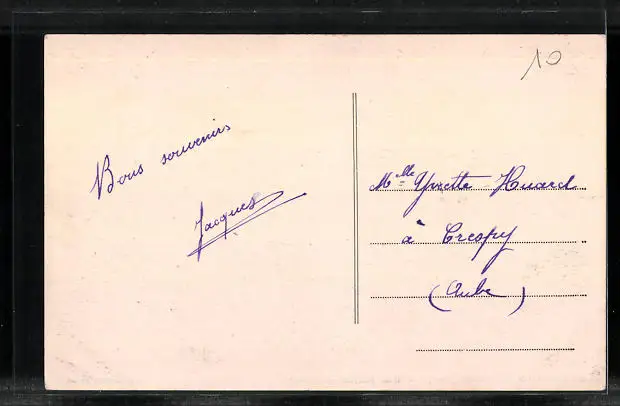 10
Bons souvenirs
Jacques
Melle Yvette Huard
à Crespy
(Aube)